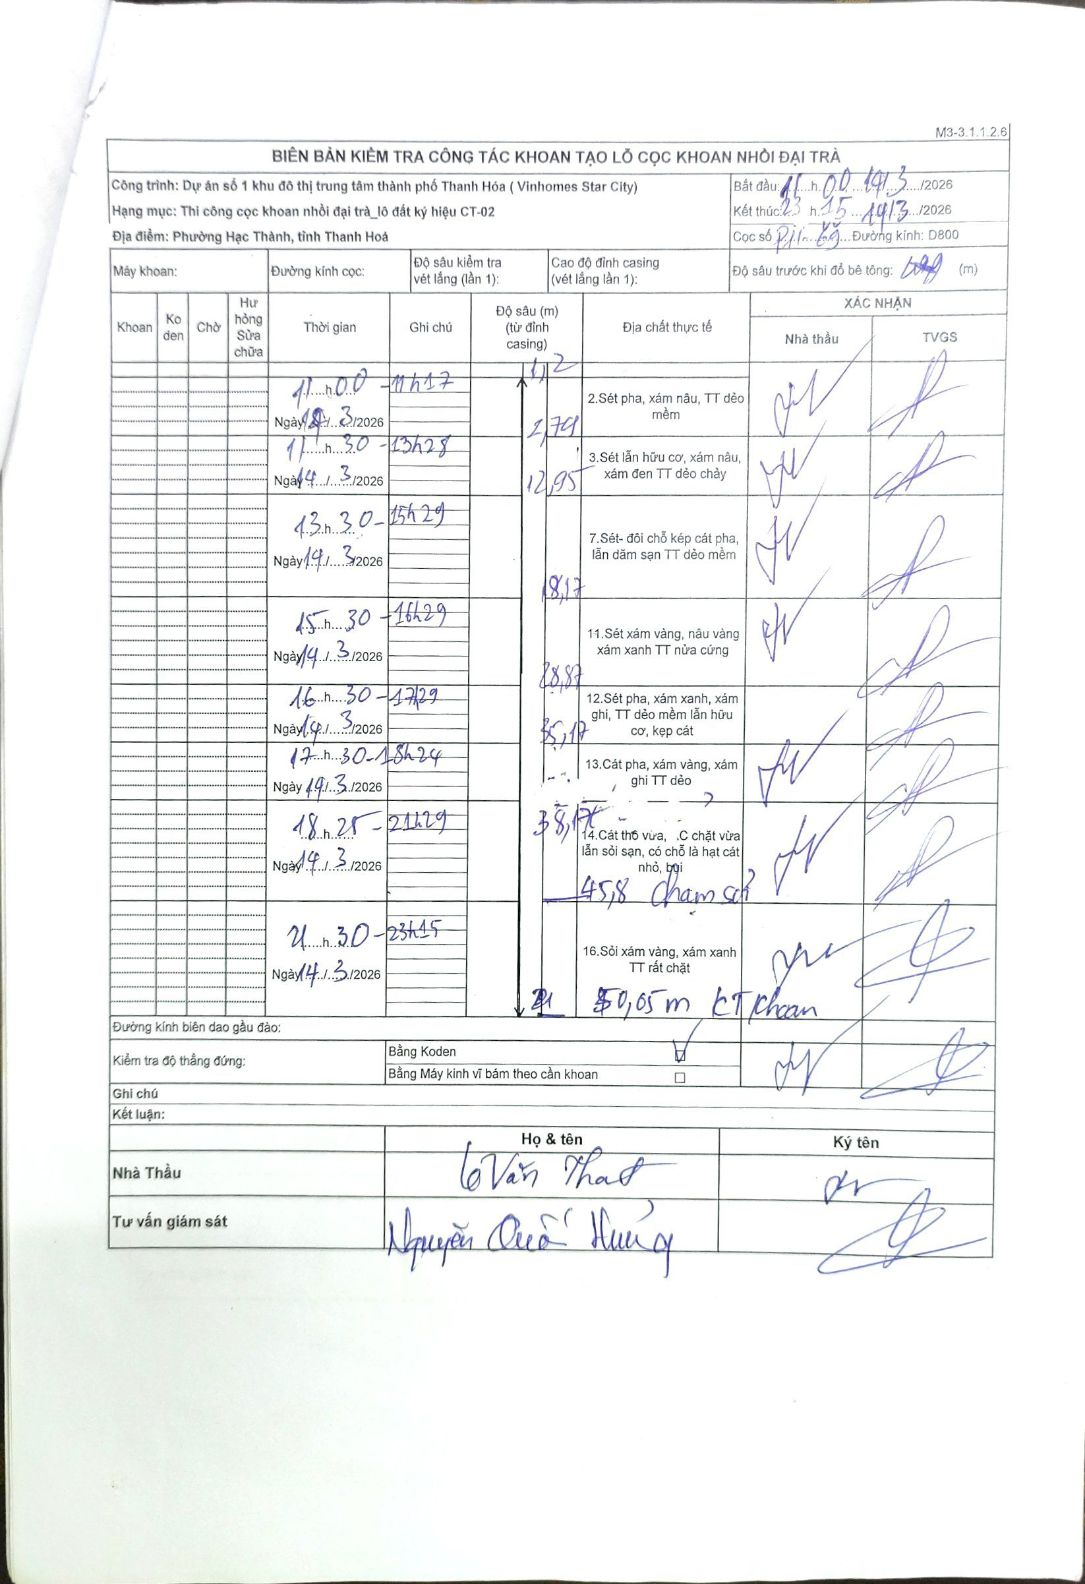 M3-3.1.1.2.6
BIÊN BẢN KIỂM TRA CÔNG TÁC KHOAN TẠO LỖ CỌC KHOAN NHỒI ĐẠI TRÀ
Công trình: Dự án số 1 khu đô thị trung tâm thành phố Thanh Hóa ( Vinhomes Star City)
Bắt đầu: 11 h 00 14/3/2026
Hạng mục: Thi công cọc khoan nhồi đại trà_lô đất ký hiệu CT-02
Kết thúc: 23 h 15 14/3/2026
Địa điểm: Phường Hạc Thành, tỉnh Thanh Hoá
Cọc số Đường kính: D800
Máy khoan:
Đường kính cọc:
Độ sâu kiểm tra
vét lắng (lần 1):
Cao độ đỉnh casing
(vét lắng lần 1):
Độ sâu trước khi đổ bê tông: (m)
Khoan
Ko
den
Chờ
Hư
hỏng
Sửa
chữa
Thời gian
Ghi chú
Độ sâu (m)
(từ đỉnh
casing)
Địa chất thực tế
XÁC NHẬN
Nhà thầu
TVGS
1,2
11 h 00 - 11h17
Ngày 14/3/2026
2.Sét pha, xám nâu, TT dẻo
mềm
2,79
11 h 30 - 13h28
Ngày 14/3/2026
3.Sét lẫn hữu cơ, xám nâu,
xám đen TT dẻo chảy
12,95
13 h 30 - 15h29
Ngày 14/3/2026
7.Sét- đôi chỗ kép cát pha,
lẫn dăm sạn TT dẻo mềm
18,17
15 h 30 - 16h29
Ngày 14/3/2026
11.Sét xám vàng, nâu vàng
xám xanh TT nửa cứng
28,87
16 h 30 - 17h29
Ngày 14/3/2026
12.Sét pha, xám xanh, xám
ghi, TT dẻo mềm lẫn hữu
cơ, kẹp cát
35,17
17 h 30 - 18h24
Ngày 14/3/2026
13.Cát pha, xám vàng, xám
ghi TT dẻo
38,17
18 h 25 - 21h29
Ngày 14/3/2026
14.Cát thô vừa, .C chặt vừa
lẫn sỏi sạn, có chỗ là hạt cát
nhỏ, bụi
45,8 chạm sỏi
21 h 30 - 23h15
Ngày 14/3/2026
16.Sỏi xám vàng, xám xanh
TT rất chặt
50,05 m KT khoan
Đường kính biên dao gầu đào:
Kiểm tra độ thẳng đứng:
Bằng Koden
Bằng Máy kinh vĩ bám theo cần khoan
Ghi chú
Kết luận:
Họ & tên
Ký tên
Nhà Thầu
Tư vấn giám sát
Nguyễn Quốc Hưng